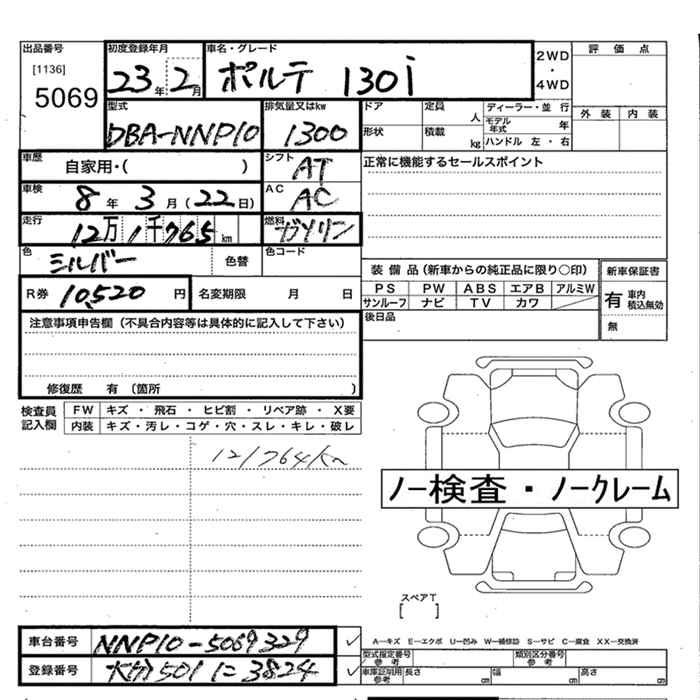 出品番号 初度登録年月 車名・グレード 2WD・4WD 評価点
[1136] 5069 23年2月 ポルテ 130i 外装 内装
型式 排気量又はkw ドア 定員 人 ディーラー・並行
DBA-NNP10 1300 形状 積載 kg モデル年式 年 ハンドル 左・右
車歴 自家用・( ) シフト AT 正常に機能するセールスポイント
車検 8年3月(22日) AC AC
走行 12万1千765km 燃料 ガソリン
色 シルバー 色替 色コード
装備品(新車からの純正品に限り○印) 新車保証書
R券 10,520円 名変期限 月 日 PS PW ABS エアB アルミW 有 車内積込無効
サンルーフ ナビ TV カワ
注意事項申告欄(不具合内容等は具体的に記入して下さい) 後日品 無
修復歴 有(箇所 )
検査員記入欄 FW キズ・飛石・ヒビ割・リペア跡・X要
内装 キズ・汚レ・コゲ・穴・スレ・キレ・破レ
121764km
ノー検査・ノークレーム
スペアT
[ ]
車台番号 NNP10-5069329 ✓ A−キズ E−エクボ U−凹み W−補修跡 S−サビ C−腐食 XX−交換済
型式指定番号 参考 類別区分番号 参考
登録番号 大分501に3824 ✓ 車庫証明用参考 長さ cm 幅 cm 高さ cm